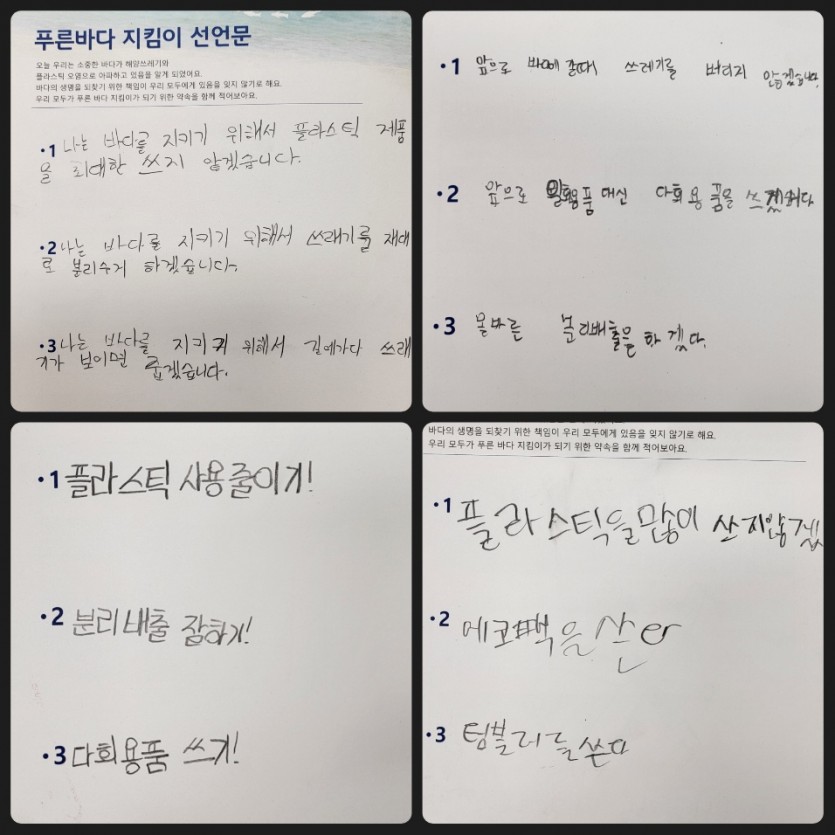 푸른바다 지킴이 선언문
오늘 우리는 소중한 바다가 해양쓰레기와
플라스틱 오염으로 아파하고 있음을 알게 되었어요.
바다의 생명을 되찾기 위한 책임이 우리 모두에게 있음을 잊지 않기로 해요.
우리 모두가 푸른 바다 지킴이가 되기 위한 약속을 함께 적어보아요.
•1 나는 바다를 지키기 위해서 플라스틱 제품
을 최대한 쓰지 않겠습니다.
•2 나는 바다를 지키기 위해서 쓰래기를 재대
로 불리수거 하겠습니다.
•3 나는 바다를 지키기 위해서 길에가다 쓰래
기가 보이면 줍겠습니다.
•1 앞으로 바다에 갈때 쓰레기를 버리지 않겠습니다.
•2 앞으로 일회용품 대신 다회용품을 쓰겠
•3 올바른 분리배출을 하겠다.
•1 플라스틱 사용줄이기!
•2 분리배출 잘하기!
•3 다회용품 쓰기!
바다의 생명을 되찾기 위한 책임이 우리 모두에게 있음을 잊지 않기로 해요.
우리 모두가 푸른 바다 지킴이가 되기 위한 약속을 함께 적어보아요.
•1 플라스틱을많이 산지않겠
•2 에코백을 산다
•3 텀블러를 쓴다